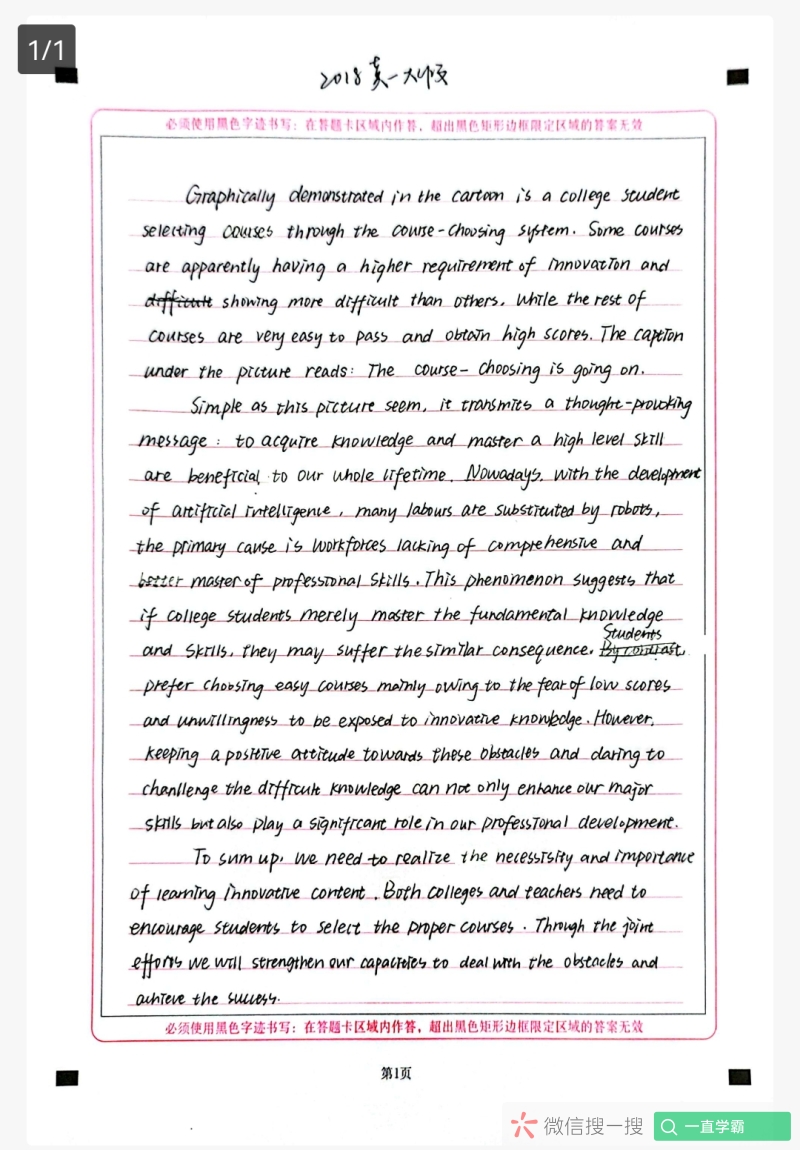 1/1
2018 英一大作文
必须使用黑色字迹书写：在答题卡区域内作答，超出黑色矩形边框限定区域的答案无效
Graphically demonstrated in the cartoon is a college student
selecting courses through the course-choosing system. Some courses
are apparently having a higher requirement of innovation and
difficult showing more difficult than others, while the rest of
courses are very easy to pass and obtain high scores. The caption
under the picture reads: The course-choosing is going on.
Simple as this picture seem, it transmits a thought-provoking
message: to acquire knowledge and master a high level skill
are beneficial to our whole lifetime. Nowadays, with the development
of artificial intelligence, many labours are substituted by robots,
the primary cause is workforces lacking of comprehensive and
better master of professional skills. This phenomenon suggests that
if college students merely master the fundamental knowledge
Students
and skills, they may suffer the similar consequence. By contrast,
prefer choosing easy courses mainly owing to the fear of low scores
and unwillingness to be exposed to innovative knowledge. However,
keeping a positive attitude towards these obstacles and daring to
chanllenge the difficult knowledge can not only enhance our major
skills but also play a significant role in our professional development.
To sum up, we need to realize the necessisity and importance
of learning innovative content. Both colleges and teachers need to
encourage students to select the proper courses. Through the joint
efforts we will strengthen our capacities to deal with the obstacles and
achieve the success.
必须使用黑色字迹书写：在答题卡区域内作答，超出黑色矩形边框限定区域的答案无效
第1页
微信搜一搜 一直学霸